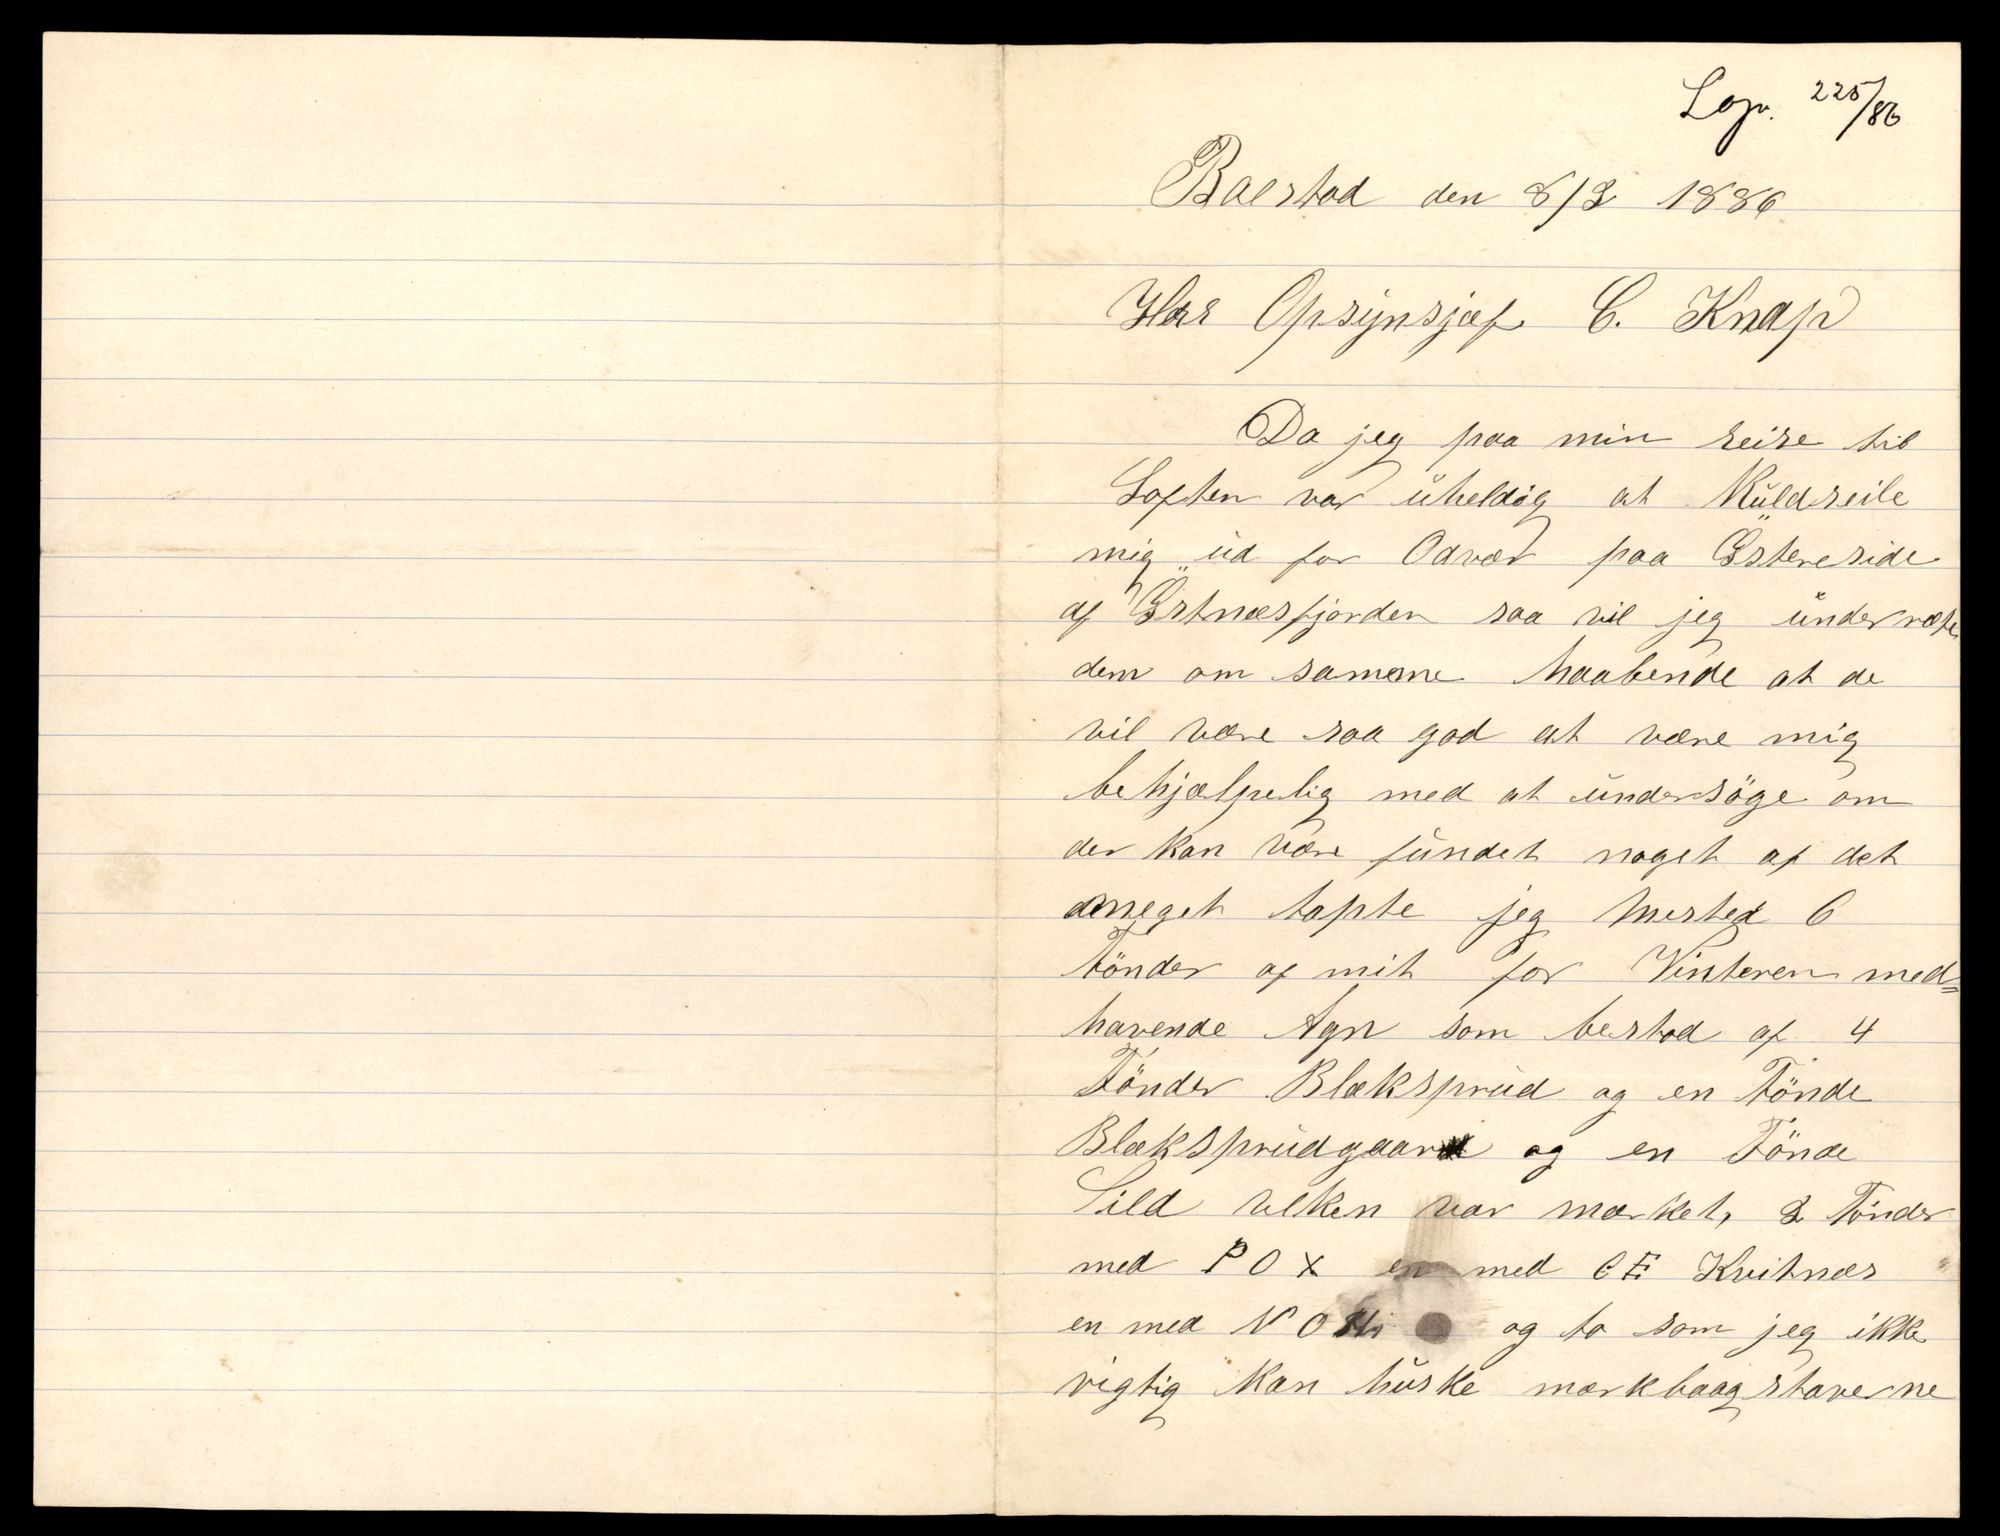 Lop. 225/86
Balstad den 8/2 1886
Herr Opsynsjæf C. Knap
Da jeg paa min reise til
Loften var uheldig at Kuldseile
mig ud for Odvær paa Östereside
af Östnæsfjorden saa vil jeg underræte
dem om samme haabende at de
vil være saa god at være mig
behjælpelig med at undersöge om
der kan være fundet noget af det
meget tapte jeg mested 6
Tönder af mit for Vinteren med=
havende Agn som bestod af 4
Tönder Blæksprud og en Tönde
Blæksprudgaarn og en Tönde
Sild vilken var mærket, 2 Tönder
med P O X en med C E Kvitnæs
en med N O og to som jeg ikke
vigtig kan huske mærkbaagstaverne